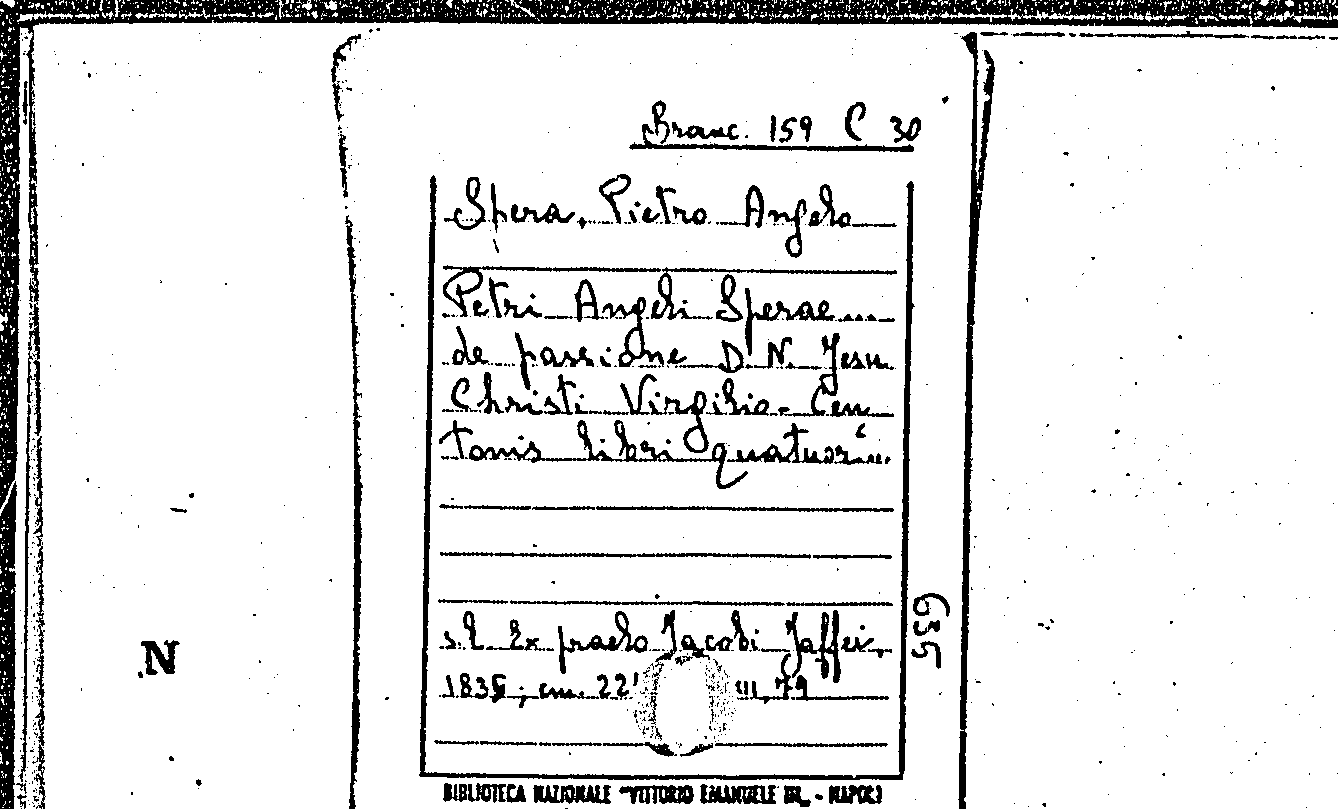 Branc. 159 C 30
Spera, Pietro Angelo
Petri Angeli Sperae ...
de passione D. N. Jesu
Christi Virgilio-Cen
tonis libri quatuor ...
s.l. Ex praelo Jacobi Jaffei,
1835; cm. 22 III, 79
635
N
BIBLIOTECA NAZIONALE "VITTORIO EMANUELE III„ - NAPOLI